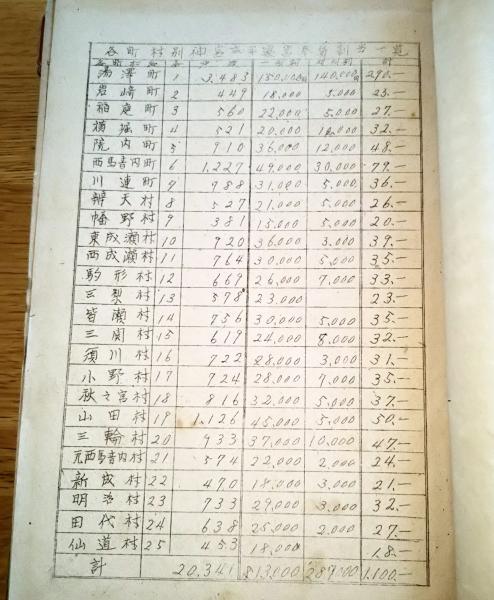 各町村別神宮式年遷宮奉賛割当一覧
湯澤町 1 3,483 150,000 140,000 290.—
岩崎町 2 449 18,000 5,000 23.—
稲庭町 3 560 22,000 5,000 27.—
横堀町 4 521 20,000 12,000 32.—
院内町 5 910 36,000 12,000 48.—
西馬音内町 6 1,227 49,000 30,000 79.—
川連町 7 788 31,000 5,000 36.—
辨天村 8 527 21,000 5,000 26.—
幡野村 9 381 15,000 5,000 20.—
東成瀬村 10 920 36,000 3,000 39.—
西成瀬村 11 764 30,000 5,000 35.—
駒形村 12 669 26,000 7,000 33.—
三梨村 13 578 23,000 23.—
皆瀬村 14 756 30,000 5,000 35.—
三関村 15 619 24,000 8,000 32.—
須川村 16 722 28,000 3,000 31.—
小野村 17 724 28,000 7,000 35.—
秋之宮村 18 816 32,000 5,000 37.—
山田村 19 1,126 45,000 5,000 50.—
三輪村 20 933 37,000 10,000 47.—
元西馬音内村 21 574 22,000 2,000 24.—
新成村 22 470 18,000 3,000 21.—
明治村 23 733 29,000 3,000 32.—
田代村 24 638 25,000 2,000 27.—
仙道村 25 453 18,000 18.—
計 20,341 813,000 287,000 1,100.—